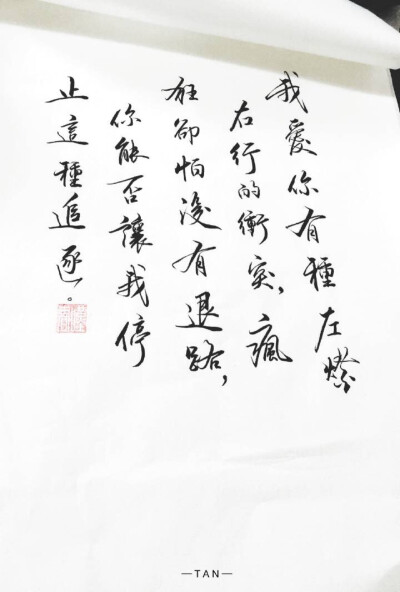 我愛你有種左燈
右行的衝突,瘋
狂卻怕沒有退路,
你能否讓我停
止這種追逐。
—TAN—